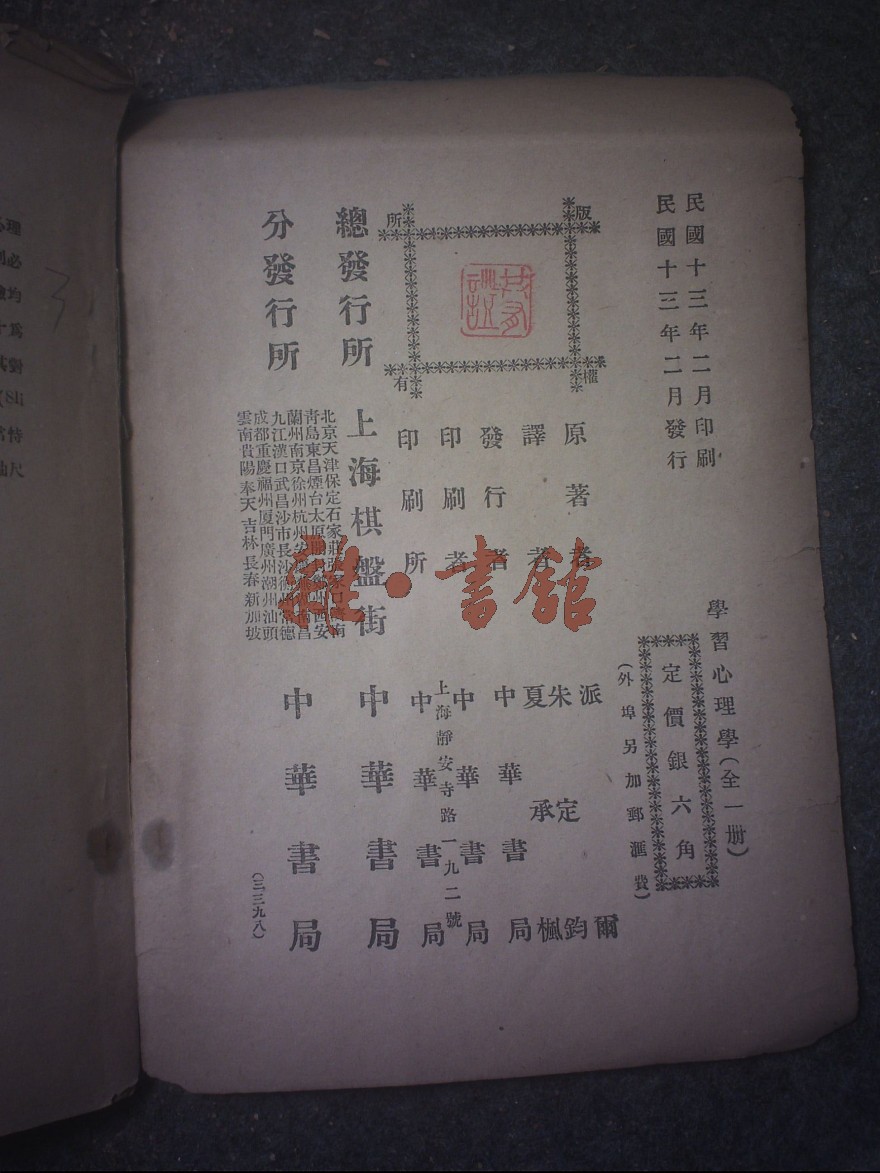 民國十三年二月印刷
民國十三年二月發行
學習心理學(全一册)
定價銀六角
(外埠另加郵滙費)
版權所有
原著者 派爾
譯者 朱定鈞 夏承楓
發行者 中華書局
印刷者 中華書局
上海靜安寺路一九二號
印刷所 中華書局
總發行所 上海棋盤街 中華書局
分發行所
北京天津保定石家莊張家口濟南
青島東昌煙台太原
蘭州南京徐州杭州安
九江漢口武昌沙市長沙 常德
成都重慶福州厦門廣州潮州汕頭
雲南貴陽奉天吉林長春新加坡
中華書局
(三三九八)
雜·書館
理
必
均
爲
對
(Sli
特
尺